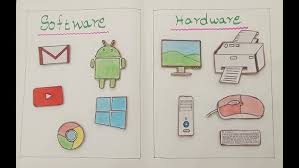 Software
Hardware